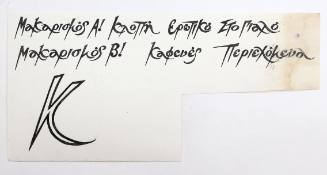 Μακαρισμός Α! Κλοπή Ερωτικό Στο γιαλό
Μακαρισμός Β! Καφενές Περιεχόμενα
Κ